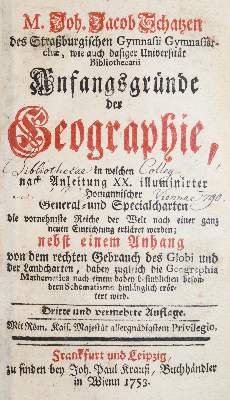 M. Joh. Jacob Schatzen
des Straßburgischen Gymnasii Gymnasiar-
chæ, wie auch dasiger Universität
Bibliothecarii
Anfangsgründe
der
Geographie,
Bibliothecae in welchen Colleg.
nach Anleitung XX. illuminirter
Homannischer Viennae 1790.
General- und Specialcharten
die vornehmste Reiche der Welt nach einer ganz
neuen Einrichtung erkläret werden;
nebst einem Anhang
von dem rechten Gebrauch des Globi und
der Landcharten, dabey zugleich die Geographia
Mathematica nach einem dabey befindlichen beson-
dern Schematismo hinlänglich erör-
tert wird.
Dritte und vermehrte Auflage.
Mit Röm. Kais. Majestät allergnädigstem Privilegio.
Frankfurt und Leipzig,
zu finden bey Joh. Paul Krauß, Buchhändler
in Wienn 1753.